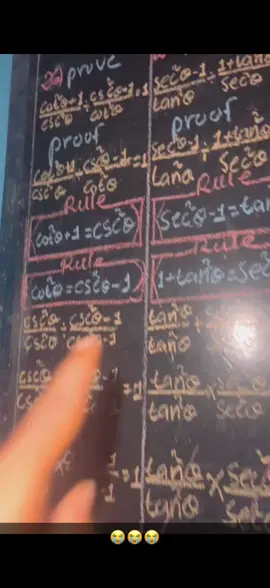 20) prove
cot²θ+1/csc²θ ÷ csc²θ-1/cot²θ = 1
proof
cot²θ+1/csc²θ ÷ csc²θ-1/cot²θ = 1
Rule
cot²θ+1=csc²θ
Rule
cot²θ=csc²θ-1
csc²θ/csc²θ ÷ csc²θ-1
csc²θ
=1
1/1=1
sec²θ-1/tan²θ ÷ 1+tan²θ/sec²θ
proof
sec²θ-1/tan²θ ÷ 1+tan²θ/sec²θ
Rule
sec²θ-1=tan
Rule
1+tan²θ=sec
tan²θ/tan²θ
tan²θ/tan²θ × sec²θ/sec²θ
tan²θ/tan²θ × sec
😭😭😭